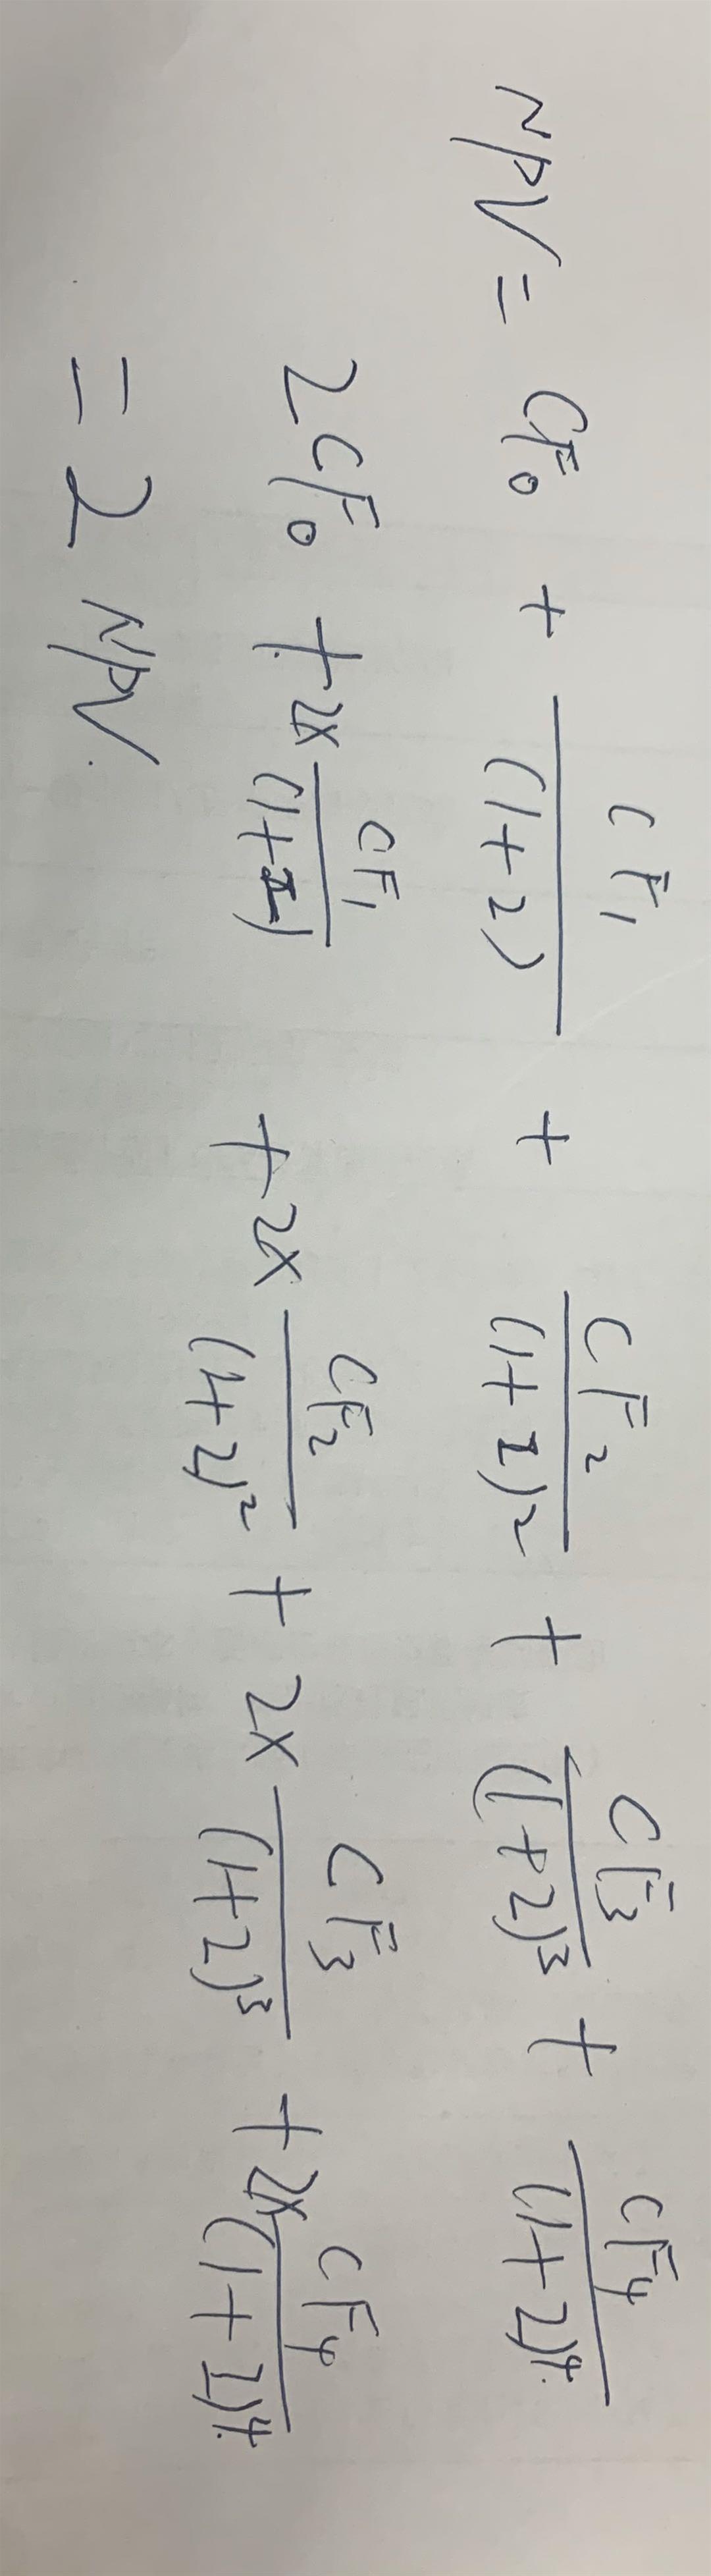 NPV = CF₀ + CF₁/(1+2) + CF₂/(1+I)² + CF₃/(1+2)³ + CF₄/(1+2)⁴
2CF₀ + 2x CF₁/(1+I) + 2x CF₂/(1+2)² + 2x CF₃/(1+2)³ + 2x CF₄/(1+I)⁴
= 2 NPV.